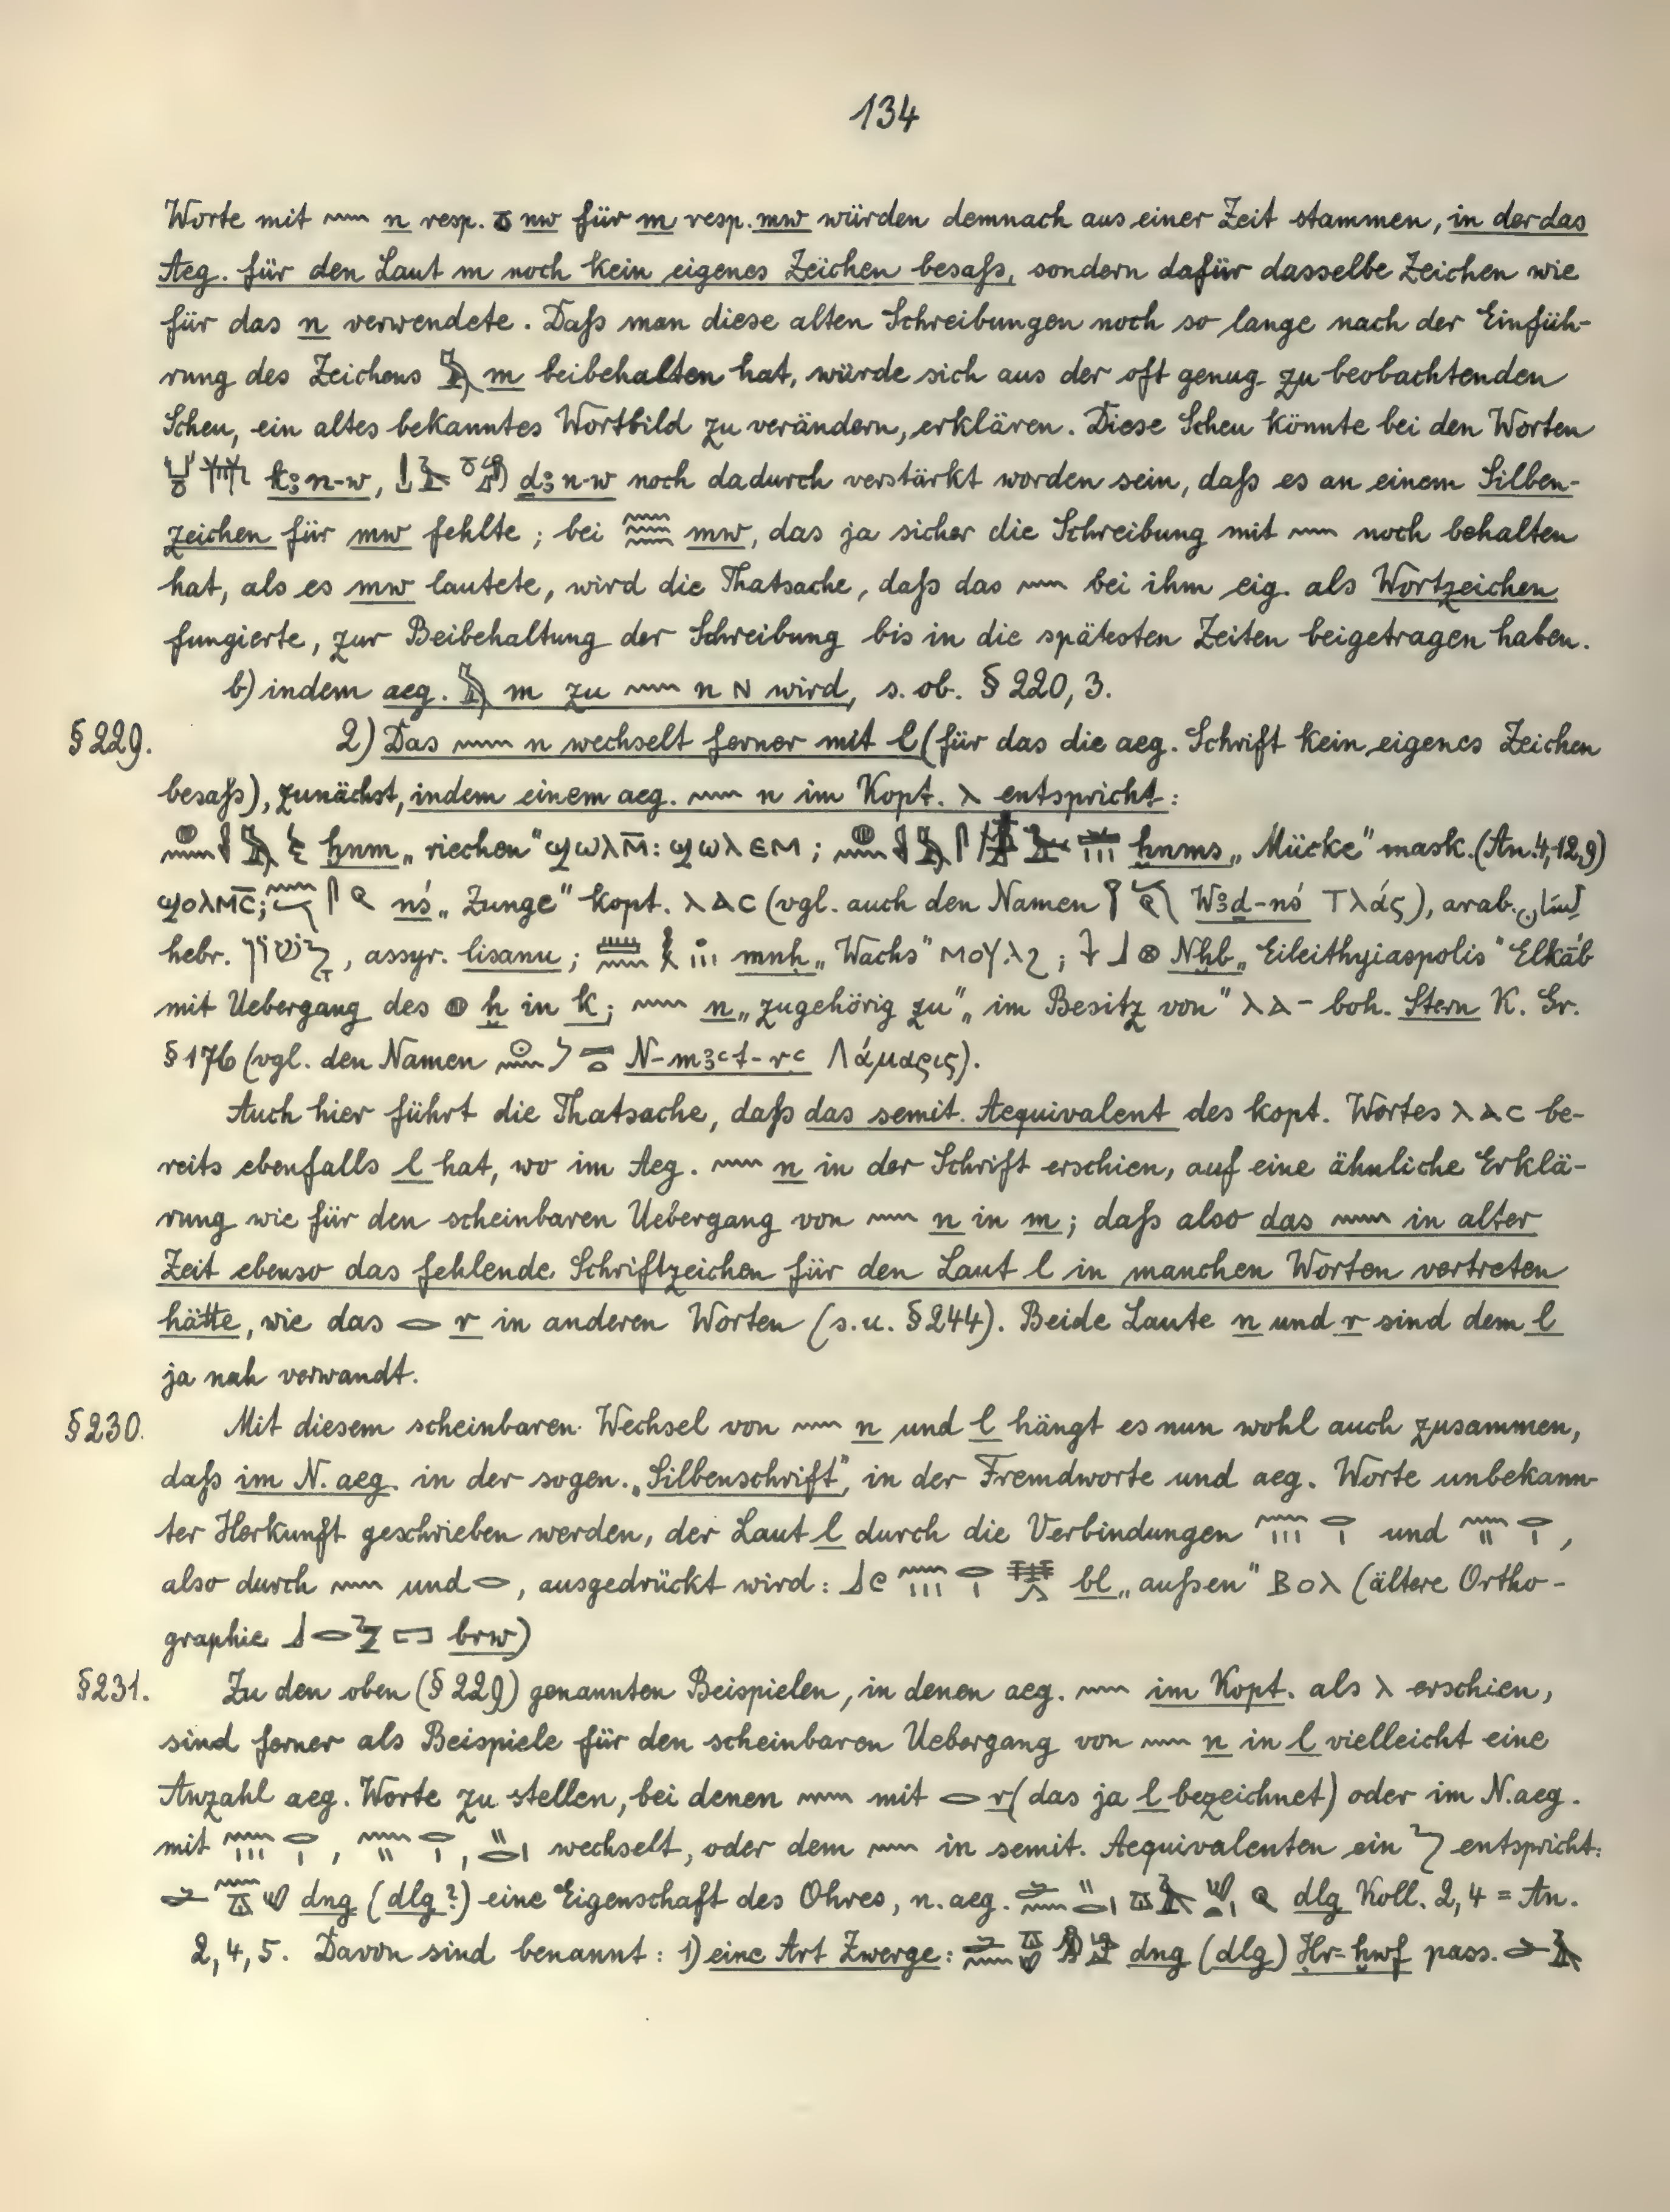 134
Worte mit 𓈖 n resp. 𓏌 nw für m resp. mw würden demnach aus einer Zeit stammen, in der das
Aeg. für den Laut m noch kein eigenes Zeichen besaß, sondern dafür dasselbe Zeichen wie
für das n verwendete. Daß man diese alten Schreibungen noch so lange nach der Einfüh-
rung des Zeichens 𓅓 m beibehalten hat, würde sich aus der oft genug zu beobachtenden
Scheu, ein altes bekanntes Wortbild zu verändern, erklären. Diese Scheu könnte bei den Worten
kꜣn-w, dꜣn-w noch dadurch verstärkt worden sein, daß es an einem Silben-
zeichen für mw fehlte; bei 𓈗 mw, das ja sicher die Schreibung mit 𓈖 noch behalten
hat, als es mw lautete, wird die Thatsache, daß das 𓈖 bei ihm eig. als Wortzeichen
fungierte, zur Beibehaltung der Schreibung bis in die spätesten Zeiten beigetragen haben.
b) indem aeg. 𓅓 m zu 𓈖 n ⲛ wird, s. ob. § 220, 3.
§ 229. 2) Das 𓈖 n wechselt ferner mit l (für das die aeg. Schrift kein eigenes Zeichen
besaß), zunächst, indem einem aeg. 𓈖 n im Kopt. ⲗ entspricht:
ḫnm „riechen" ϣⲱⲗⲙ̄: ϣⲱⲗⲉⲙ; ḫnms „Mücke" mask. (An. 4, 12, 9)
ϣⲟⲗⲙⲥ̄; nś „Zunge" kopt. ⲗⲁⲥ (vgl. auch den Namen Wꜣḏ-nś Τλάς), arab. لسان
hebr. לָשׁוֹן, assyr. lisanu; mnḥ „Wachs" ⲙⲟⲩⲗϩ; Nḫb „Eileithyiaspolis" Elkâb
mit Uebergang des 𓐍 ḫ in k; 𓈖 n „zugehörig zu" „im Besitz von" ⲗⲁ- boh. Stern K. Gr.
§ 176 (vgl. den Namen N-mꜣꜥt-rꜥ Λάμαρις).
Auch hier führt die Thatsache, daß das semit. Aequivalent des kopt. Wortes ⲗⲁⲥ be-
reits ebenfalls l hat, wo im Aeg. 𓈖 n in der Schrift erschien, auf eine ähnliche Erklä-
rung wie für den scheinbaren Uebergang von 𓈖 n in m; daß also das 𓈖 in alter
Zeit ebenso das fehlende Schriftzeichen für den Laut l in manchen Worten vertreten
hätte, wie das 𓂋 r in anderen Worten (s. u. § 244). Beide Laute n und r sind dem l
ja nah verwandt.
§ 230. Mit diesem scheinbaren Wechsel von 𓈖 n und l hängt es nun wohl auch zusammen,
daß im N. aeg. in der sogen. „Silbenschrift", in der Fremdworte und aeg. Worte unbekann-
ter Herkunft geschrieben werden, der Laut l durch die Verbindungen 𓈖𓏥𓂋𓏤 und 𓈖𓏭𓂋𓏤,
also durch 𓈖 und 𓂋, ausgedrückt wird: bl „außen" ⲃⲟⲗ (ältere Ortho-
graphie brw)
§ 231. Zu den oben (§ 229) genannten Beispielen, in denen aeg. 𓈖 im Kopt. als ⲗ erschien,
sind ferner als Beispiele für den scheinbaren Uebergang von 𓈖 n in l vielleicht eine
Anzahl aeg. Worte zu stellen, bei denen 𓈖 mit 𓂋 r (das ja l bezeichnet) oder im N. aeg.
mit 𓈖𓏥𓂋𓏤, 𓈖𓏭𓂋𓏤, 𓏭𓂋𓏤 wechselt, oder dem 𓈖 in semit. Aequivalenten ein ל entspricht:
dng (dlg?) eine Eigenschaft des Ohres, n. aeg. dlg Koll. 2, 4 = An.
2, 4, 5. Davon sind benannt: 1) eine Art Zwerge: dng (dlg) Ḥr-ḫwf pass.